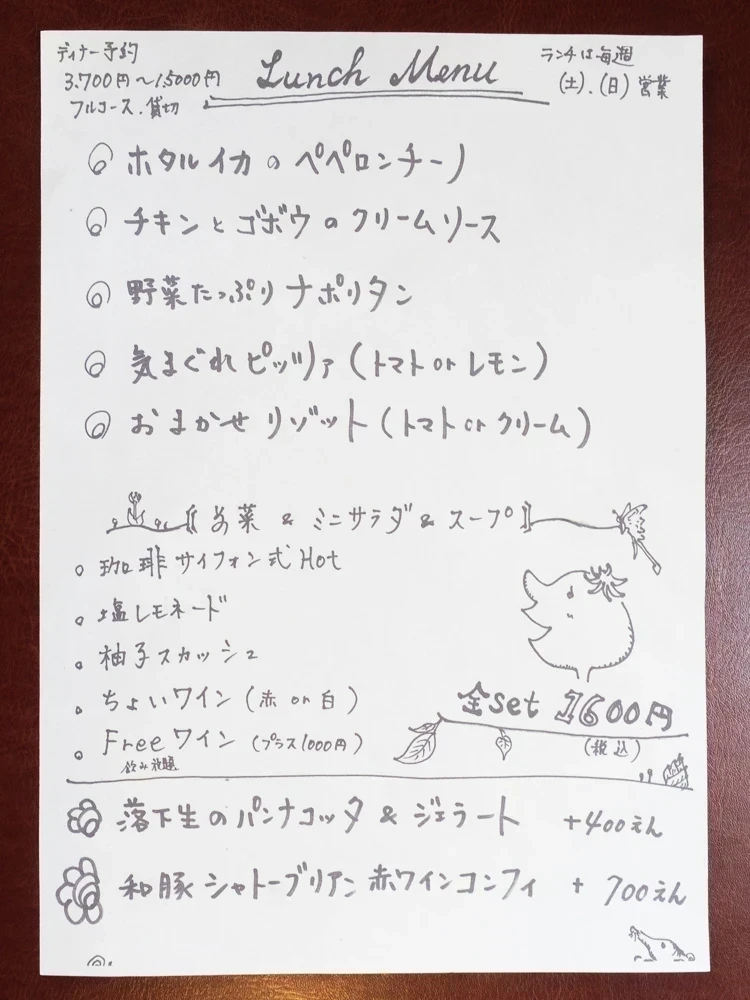 ディナー予約
3.700円〜15000円
フルコース.貸切
Lunch Menu
ランチは毎週
(土).(日)営業
ホタルイカのペペロンチーノ
チキンとゴボウのクリームソース
野菜たっぷりナポリタン
気まぐれピッツァ(トマトorレモン)
おまかせリゾット(トマトorクリーム)
前菜&ミニサラダ&スープ
珈琲サイフォン式Hot
塩レモネード
柚子スカッシュ
ちょいワイン(赤or白)
Freeワイン(プラス1000円)
飲み放題
全set 1600円
(税込)
落下生のパンナコッタ&ジェラート +400えん
和豚シャトーブリアン赤ワインコンフィ +700えん